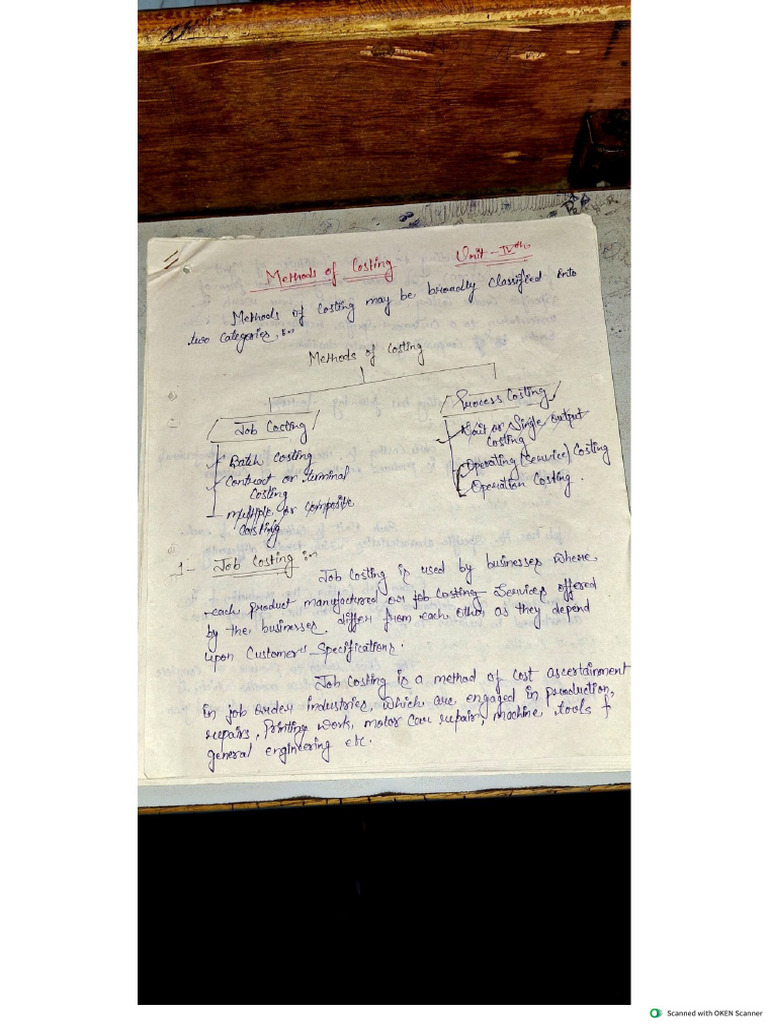 Methods of Costing Unit - IVth
Methods of Costing may be broadly classified into
two categories :-
Methods of Costing
Job Costing
Batch Costing
Contract or terminal
Costing
multiple or Composite
Costing
Process Costing
Unit or Single output
Costing
Operating (Service) Costing
Operation Costing.
1- Job Costing :-
Job Costing is used by businesses where
each product manufactured or job costing Services offered
by the businesses differ from each other as they depend
upon Customer's Specifications.
Job Costing is a method of cost ascertainment
in job order industries, which are engaged in production,
repairs, Printing work, motor car repair, machine tools &
general engineering etc.
Scanned with OKEN Scanner